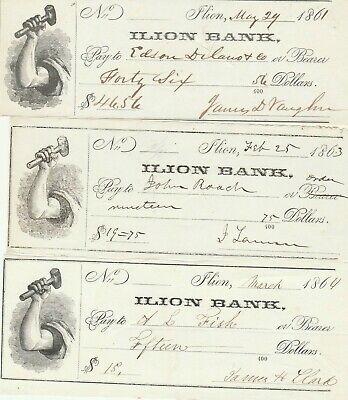 No. Ilion, May 29 1861
ILION BANK,
Pay to Edson Delano & Co or Bearer
Forty Six 56/100 Dollars.
$46 56 James D Vaughn
No. Ilion, Feb 25 1863
ILION BANK, order
Pay to John Roach or Bearer
nineteen 75/100 Dollars.
$19=75
No. Ilion, March 1864
ILION BANK,
Pay to A L Fish or Bearer
fifteen 100 Dollars.
$15, James H